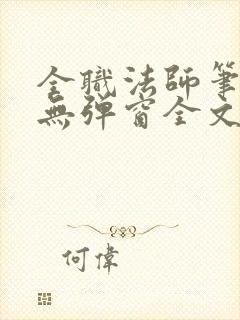 全職法師筆
無彈窗全文
何偉